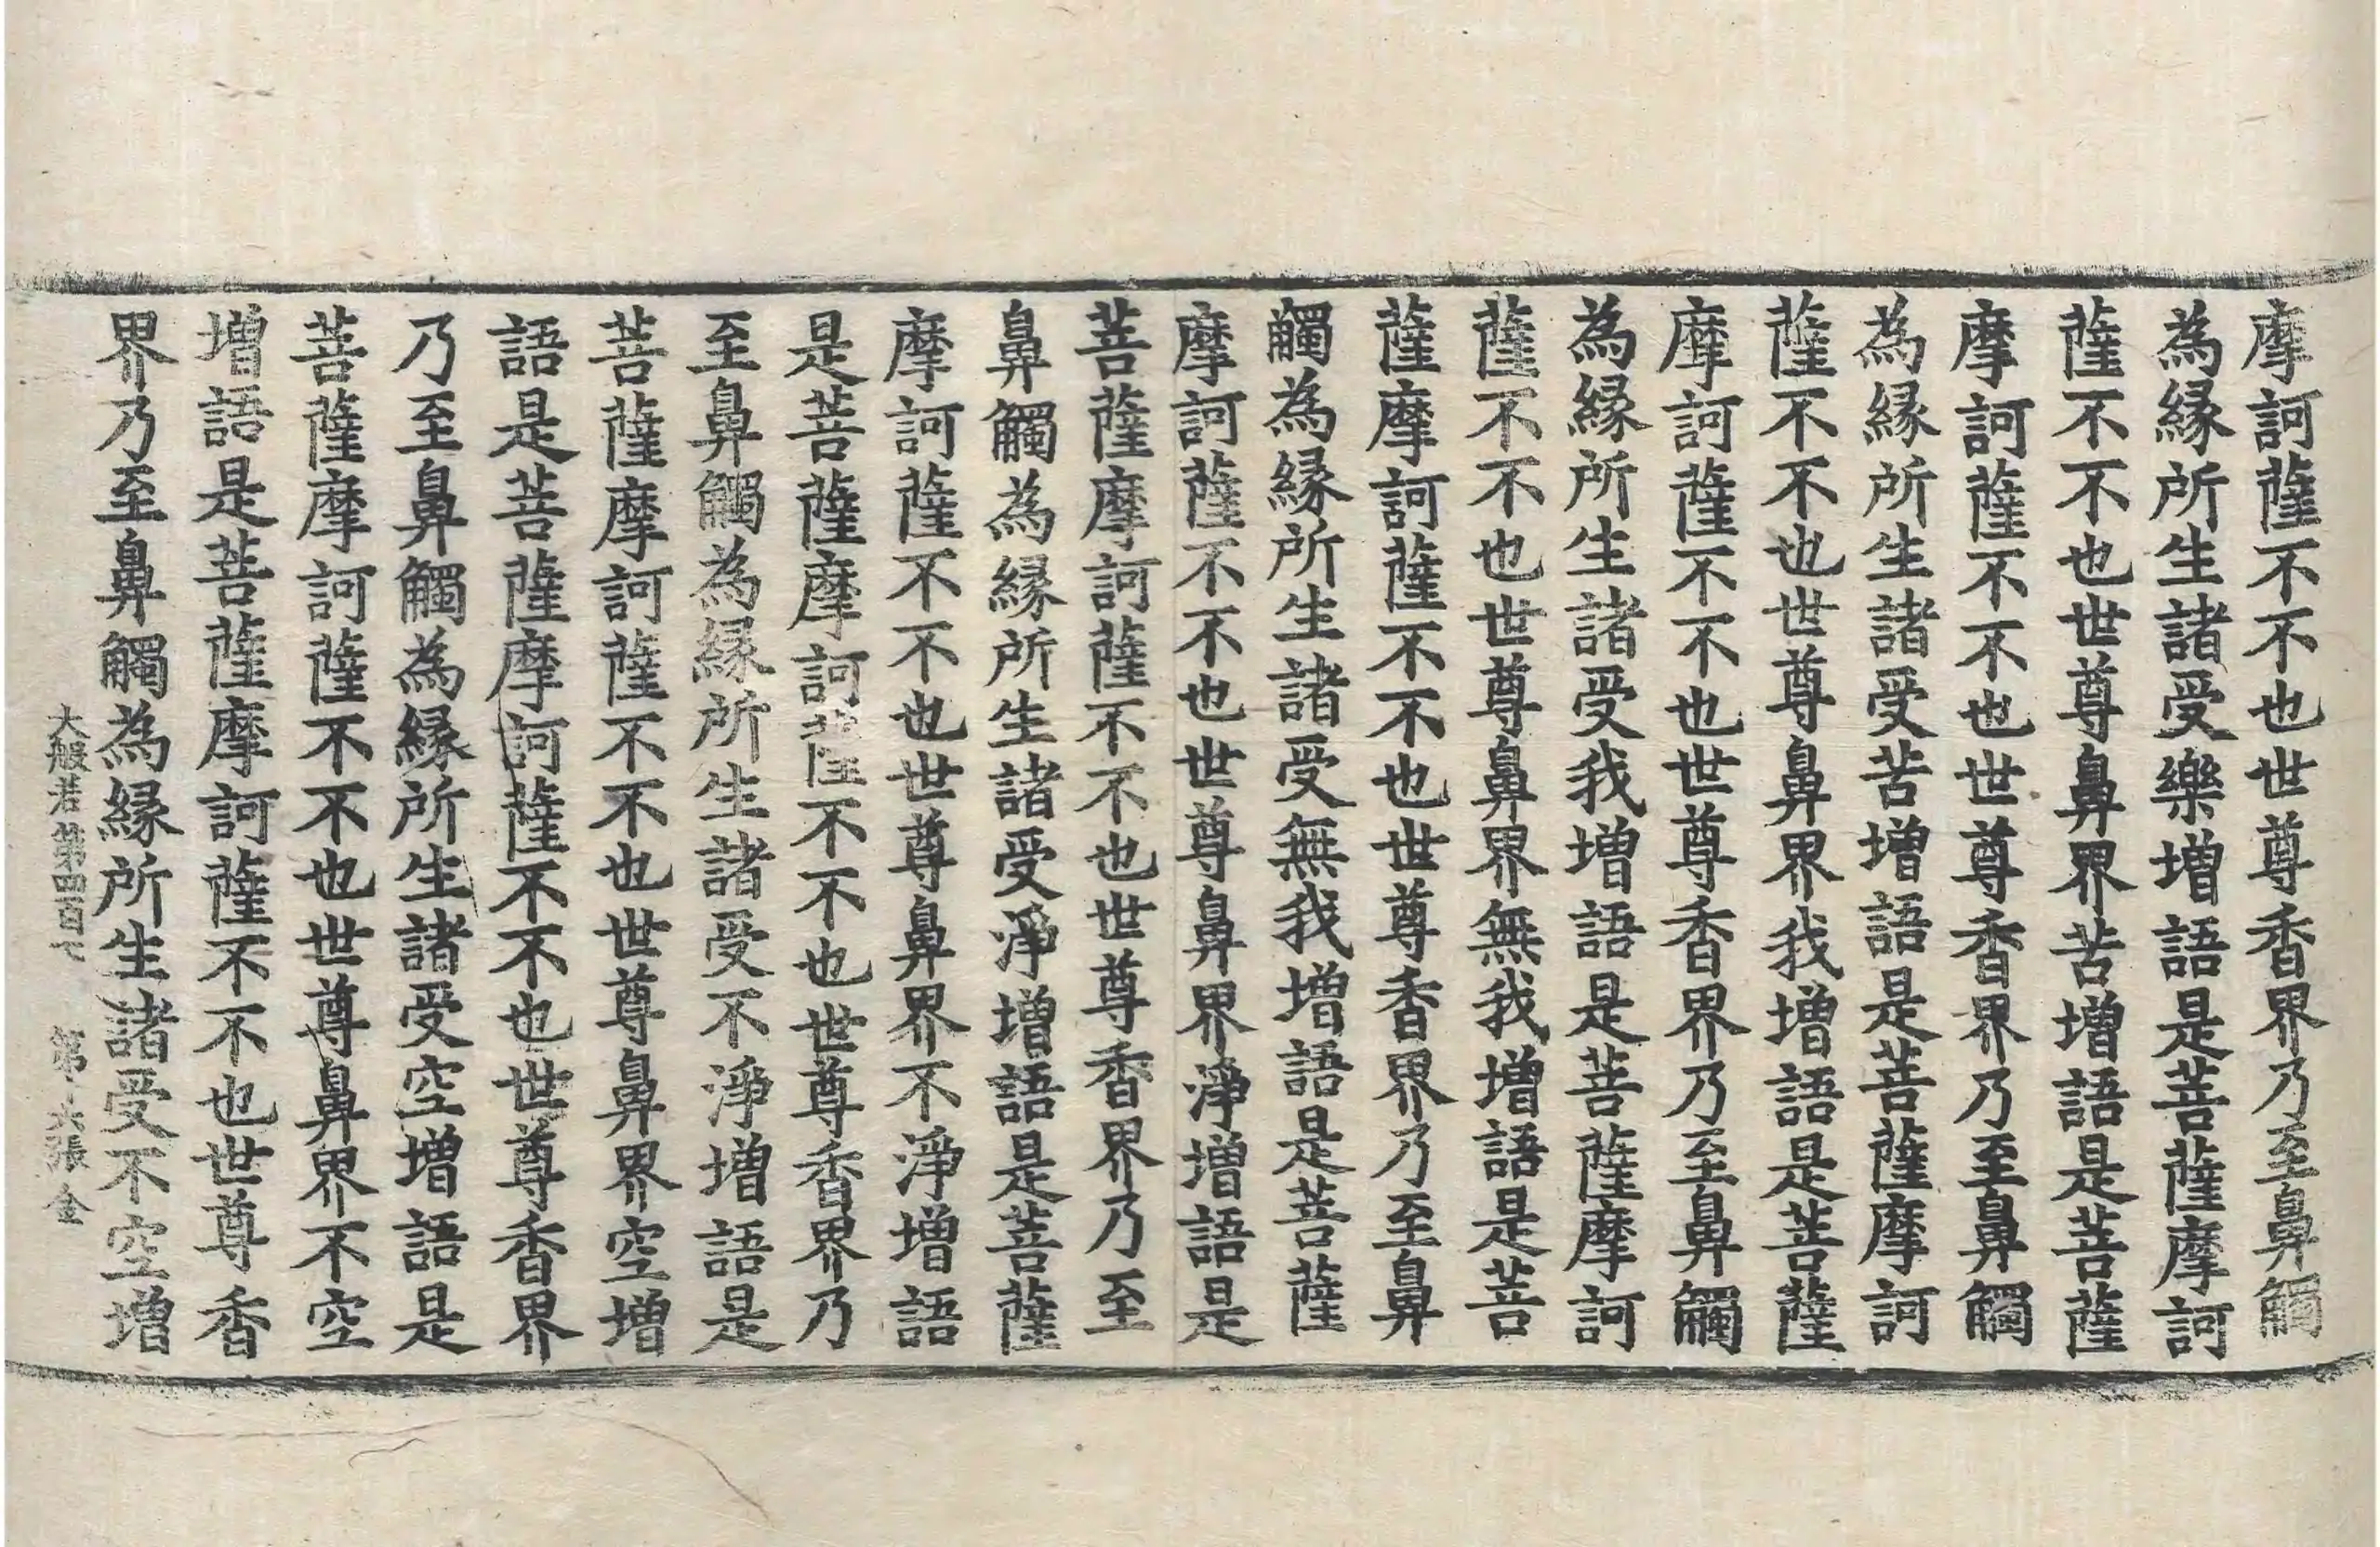 摩訶薩不不也世尊香界乃至鼻觸
為縁所生諸受樂增語是菩薩摩訶
薩不不也世尊鼻界苦增語是菩薩
摩訶薩不不也世尊香界乃至鼻觸
為縁所生諸受苦增語是菩薩摩訶
薩不不也世尊鼻界我增語是菩薩
摩訶薩不不也世尊香界乃至鼻觸
為縁所生諸受我增語是菩薩摩訶
薩不不也世尊鼻界無我增語是菩
薩摩訶薩不不也世尊香界乃至鼻
觸為縁所生諸受無我增語是菩薩
摩訶薩不不也世尊鼻界淨增語是
菩薩摩訶薩不不也世尊香界乃至
鼻觸為縁所生諸受淨增語是菩薩
摩訶薩不不也世尊鼻界不淨增語
是菩薩摩訶薩不不也世尊香界乃
至鼻觸為縁所生諸受不淨增語是
菩薩摩訶薩不不也世尊鼻界空增
語是菩薩摩訶薩不不也世尊香界
乃至鼻觸為縁所生諸受空增語是
菩薩摩訶薩不不也世尊鼻界不空
增語是菩薩摩訶薩不不也世尊香
界乃至鼻觸為縁所生諸受不空增
大般若第四百七 第十六張 金